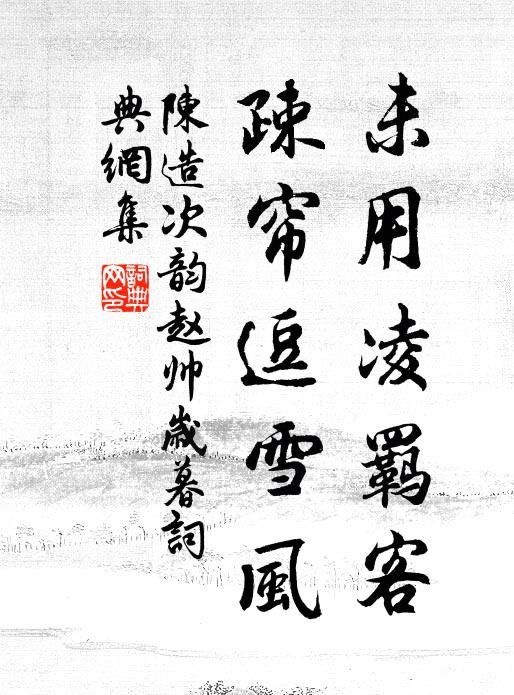 未用凌羁客
疎帘逗雪風
陳造次韵赵帅歲暮詞
典網集
詞典
网印